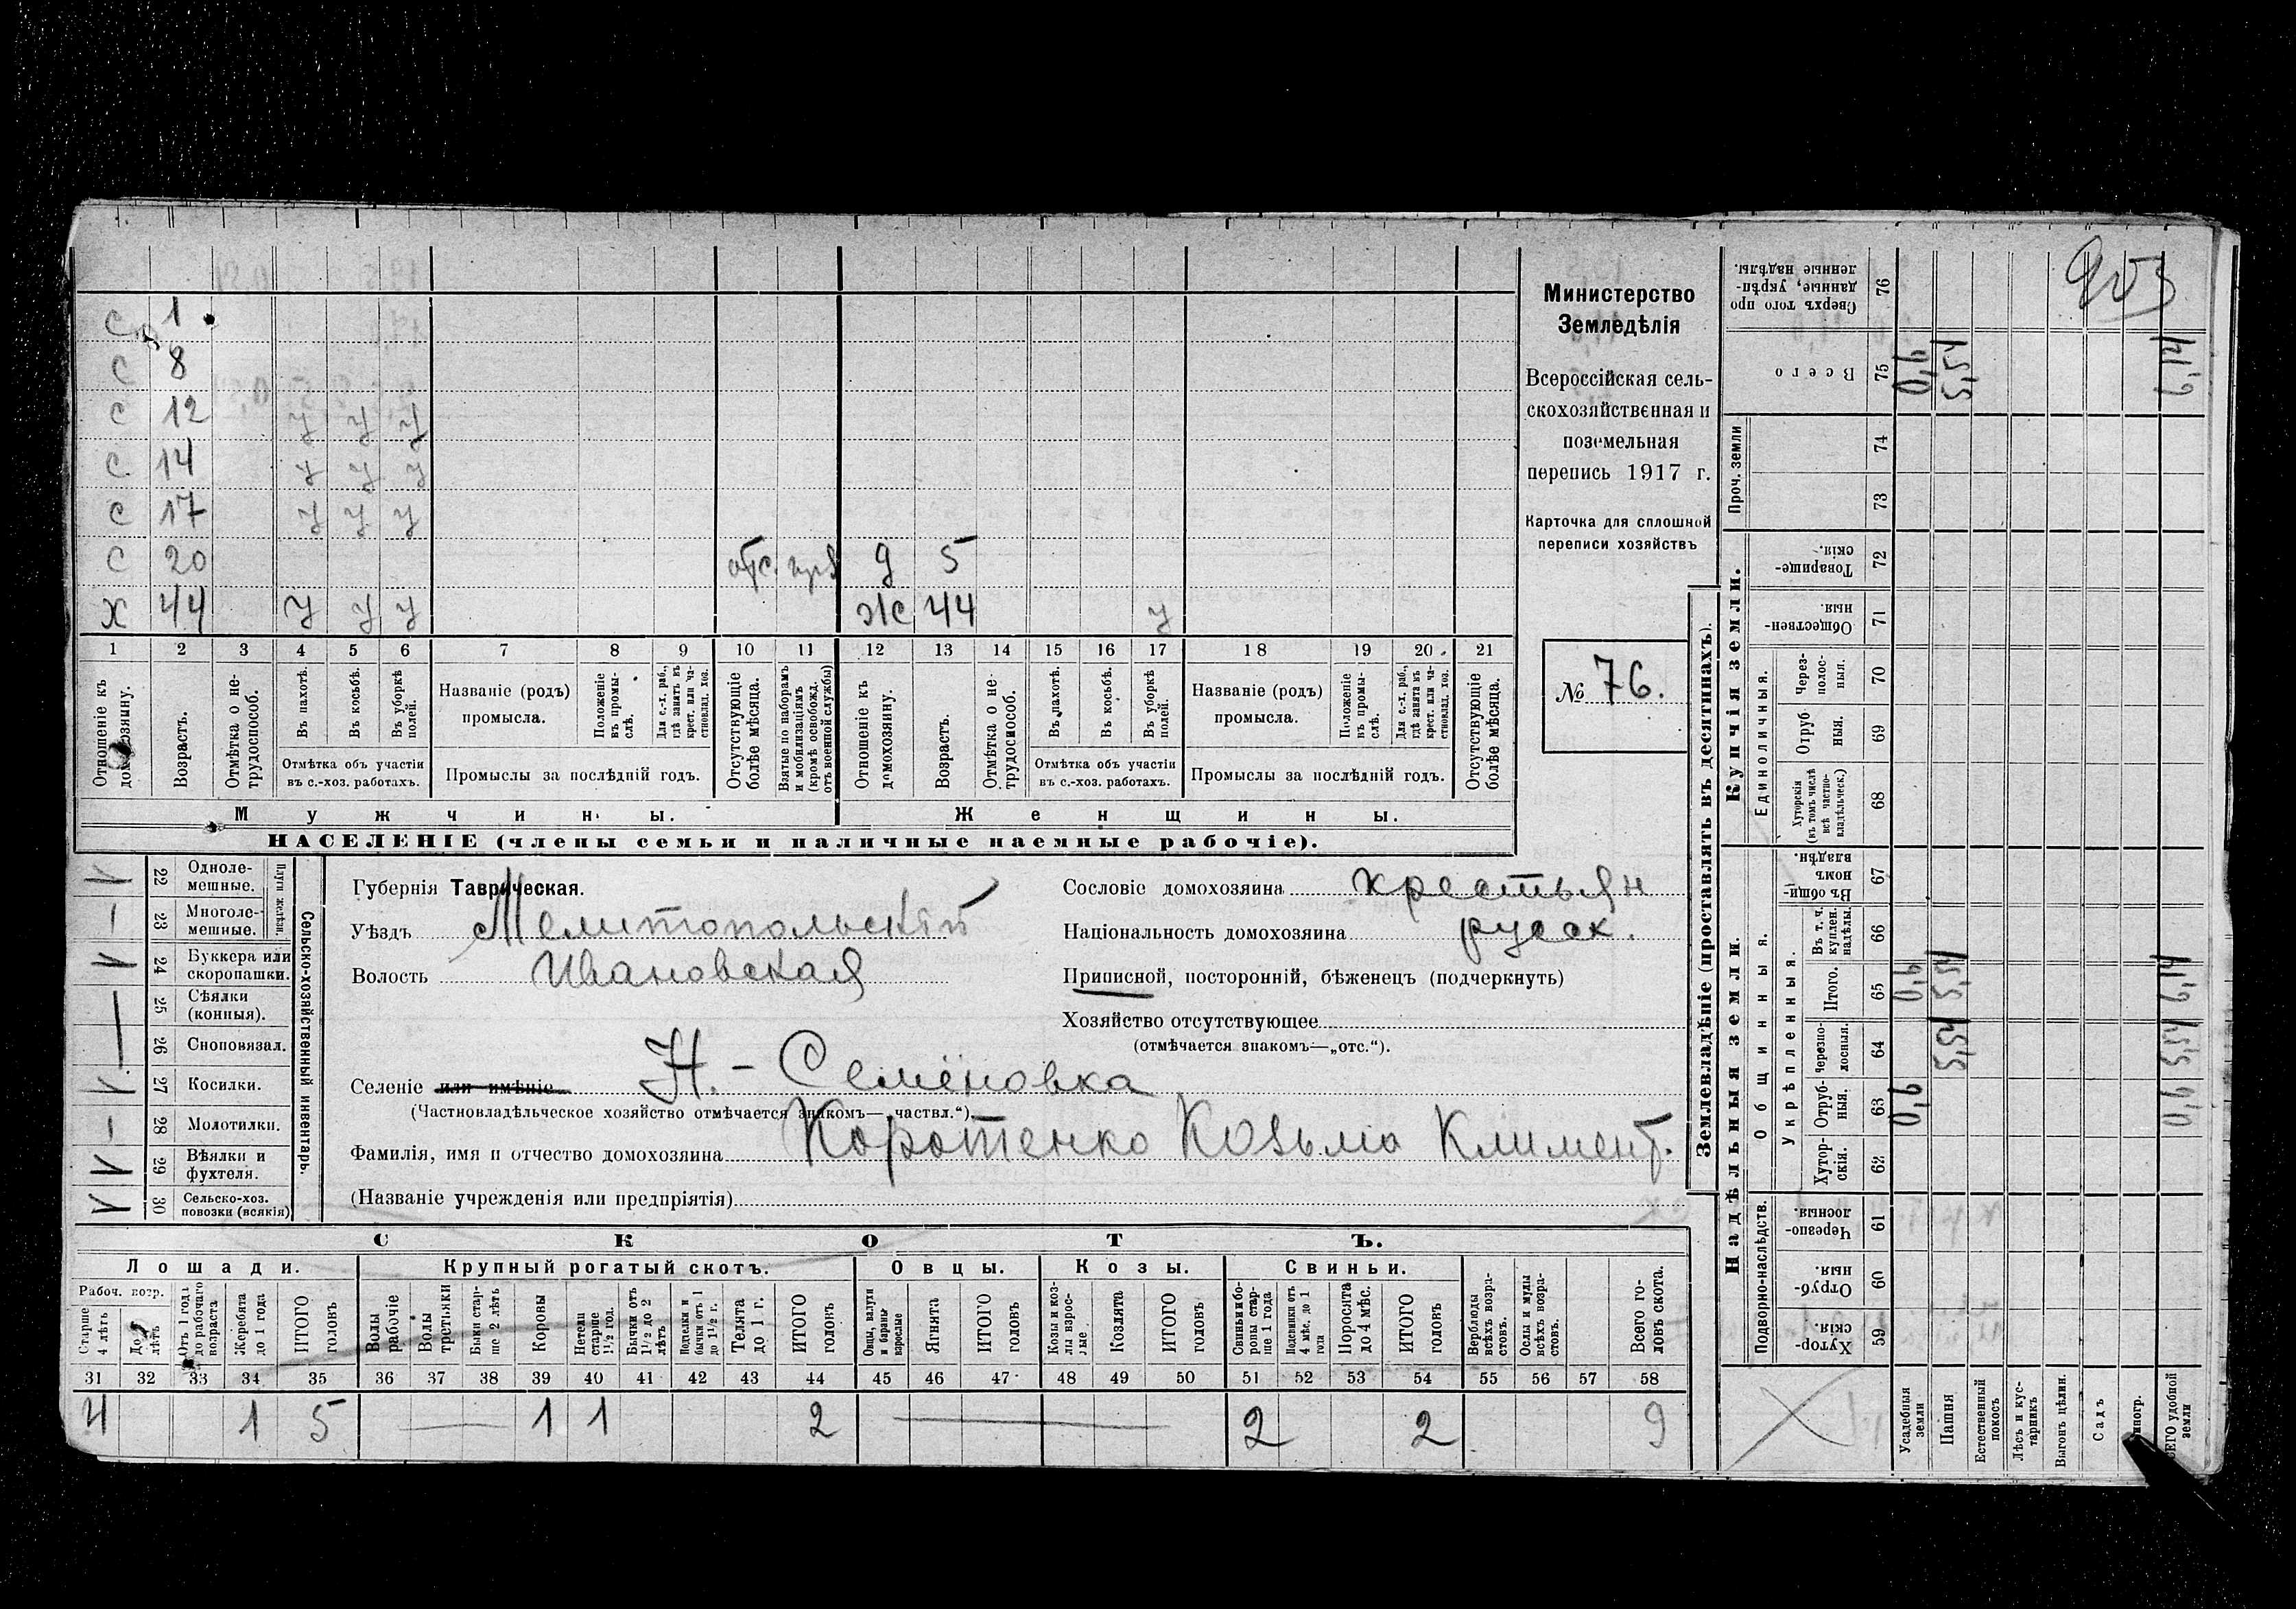 с 1
с 8
с 12 у у у
с 14 у у у
с 17 у у у
с 20 отс. д 5
х 44 у у у ж 44 у
1 2 3 4 5 6 7 8 9 10 11 12 13 14 15 16 17 18 19 20 21
Отношеніе къ домохозяину.
Возрастъ.
Отмѣтка о нетрудоспособ.
Въ пахотѣ.
Въ косьбѣ.
Въ уборкѣ полей.
Отмѣтка объ участіи
въ с.-хоз. работахъ.
Названіе (родъ)
промысла.
Положеніе въ промыслѣ.
Для с.-х. раб., гдѣ занятъ въ крест. или частновлад. хоз.
Промыслы за послѣдній годъ.
Отсутствующіе болѣе мѣсяца.
Взятые по наборамъ и мобилизаціямъ (кромѣ освобожд. отъ военной службы)
Отношеніе къ домохозяину.
Возрастъ.
Отмѣтка о нетрудоспособ.
Въ пахотѣ.
Въ косьбѣ.
Въ уборкѣ полей.
Отмѣтка объ участіи
въ с.-хоз. работахъ.
Названіе (родъ)
промысла.
Положеніе въ промыслѣ.
Для с.-х. раб., гдѣ занятъ въ крест. или частновлад. хоз.
Промыслы за послѣдній годъ.
Отсутствующіе болѣе мѣсяца.
Мужчины.
Женщины.
НАСЕЛЕНІЕ (члены семьи и наличные наемные рабочіе).
Министерство
Земледѣлія
Всероссійская сель-
скохозяйственная и
поземельная
перепись 1917 г.
Карточка для сплошной
переписи хозяйствъ
№ 76.
Сельско-хозяйственный инвентарь.
Плуги желѣзн.
22 Однолемешные.
23 Многолемешные.
24 Буккера или скоропашки.
25 Сѣялки (конныя).
26 Сноповязал.
27 Косилки.
28 Молотилки.
29 Вѣялки и фухтеля.
30 Сельско-хоз. повозки (всякія)
Губернія Таврическая.
Уѣздъ Мелитопольскій
Волость Ивановская
Сословіе домохозяина крестьян
Національность домохозяина русск.
Приписной, посторонній, бѣженецъ (подчеркнуть)
Хозяйство отсутствующее
(отмѣчается знакомъ—„отс.“).
Селеніе или имѣніе Н.- Семёновка
(Частновладѣльческое хозяйство отмѣчается знакомъ—„частвл.“).
Фамилія, имя и отчество домохозяина Коротенко Козьма Климент.
(Названіе учрежденія или предпріятія)
СКОТЪ.
Лошади. Крупный рогатый скотъ. Овцы. Козы. Свиньи.
Рабоч. возр.
Старше 4 лѣтъ
До 4 лѣтъ
Отъ 1 года до рабочаго возраста
Жеребята до 1 года
ИТОГО головъ
Волы рабочіе
Волы третьяки
Быки старше 2 лѣтъ
Коровы
Нетели старше 1½ год.
Бычки отъ 1½ до 2 лѣтъ
Подтелки и бычки отъ 1 до 1½ г.
Телята до 1 г.
ИТОГО головъ
Овцы, валухи и бараны взрослые
Ягнята
ИТОГО головъ
Козы и козлы взрослые
Козлята
ИТОГО головъ
Свиньи и боровы старше 1 года
Подсвинки отъ 4 мѣс. до 1 года
Поросята до 4 мѣс.
ИТОГО головъ
Верблюды всѣхъ возрастовъ.
Ослы и мулы всѣхъ возрастовъ.
Всего головъ скота.
31 32 33 34 35 36 37 38 39 40 41 42 43 44 45 46 47 48 49 50 51 52 53 54 55 56 57 58
4 1 5 1 1 2 2 2 9
Землевладѣніе (проставлять въ десятинахъ).
Надѣльныя земли.
Купчія земли.
Проч. земли
Подворно-наслѣдств.
Общинныя.
Укрѣпленныя.
Единоличныя.
Сверхъ того проданные, укрѣпленные надѣлы. 76
Всего 75 0,6 5,54 6,14
74
73
Товарищескія. 72
Общественныя. 71
Черезполосныя. 70
Отрубныя. 69
Хуторскія (въ томъ числѣ всѣ частновладѣльческ.) 68
Въ общинномъ владѣн. 67
Въ т. ч. куплен. надѣлы. 66
Итого. 65 0,6 5,54 6,14
Черезполосныя. 64 5,54 5,54
Отрубныя. 63 0,6 0,6
Хуторскія. 62
Черезполосныя. 61
Отрубныя. 60
Хуторскія. 59
Усадебныя земли
Пашня
Естественный покосъ
Лѣсъ и кустарникъ
Выгонъ цѣлин.
Садъ
ВСЕГО удобной земли